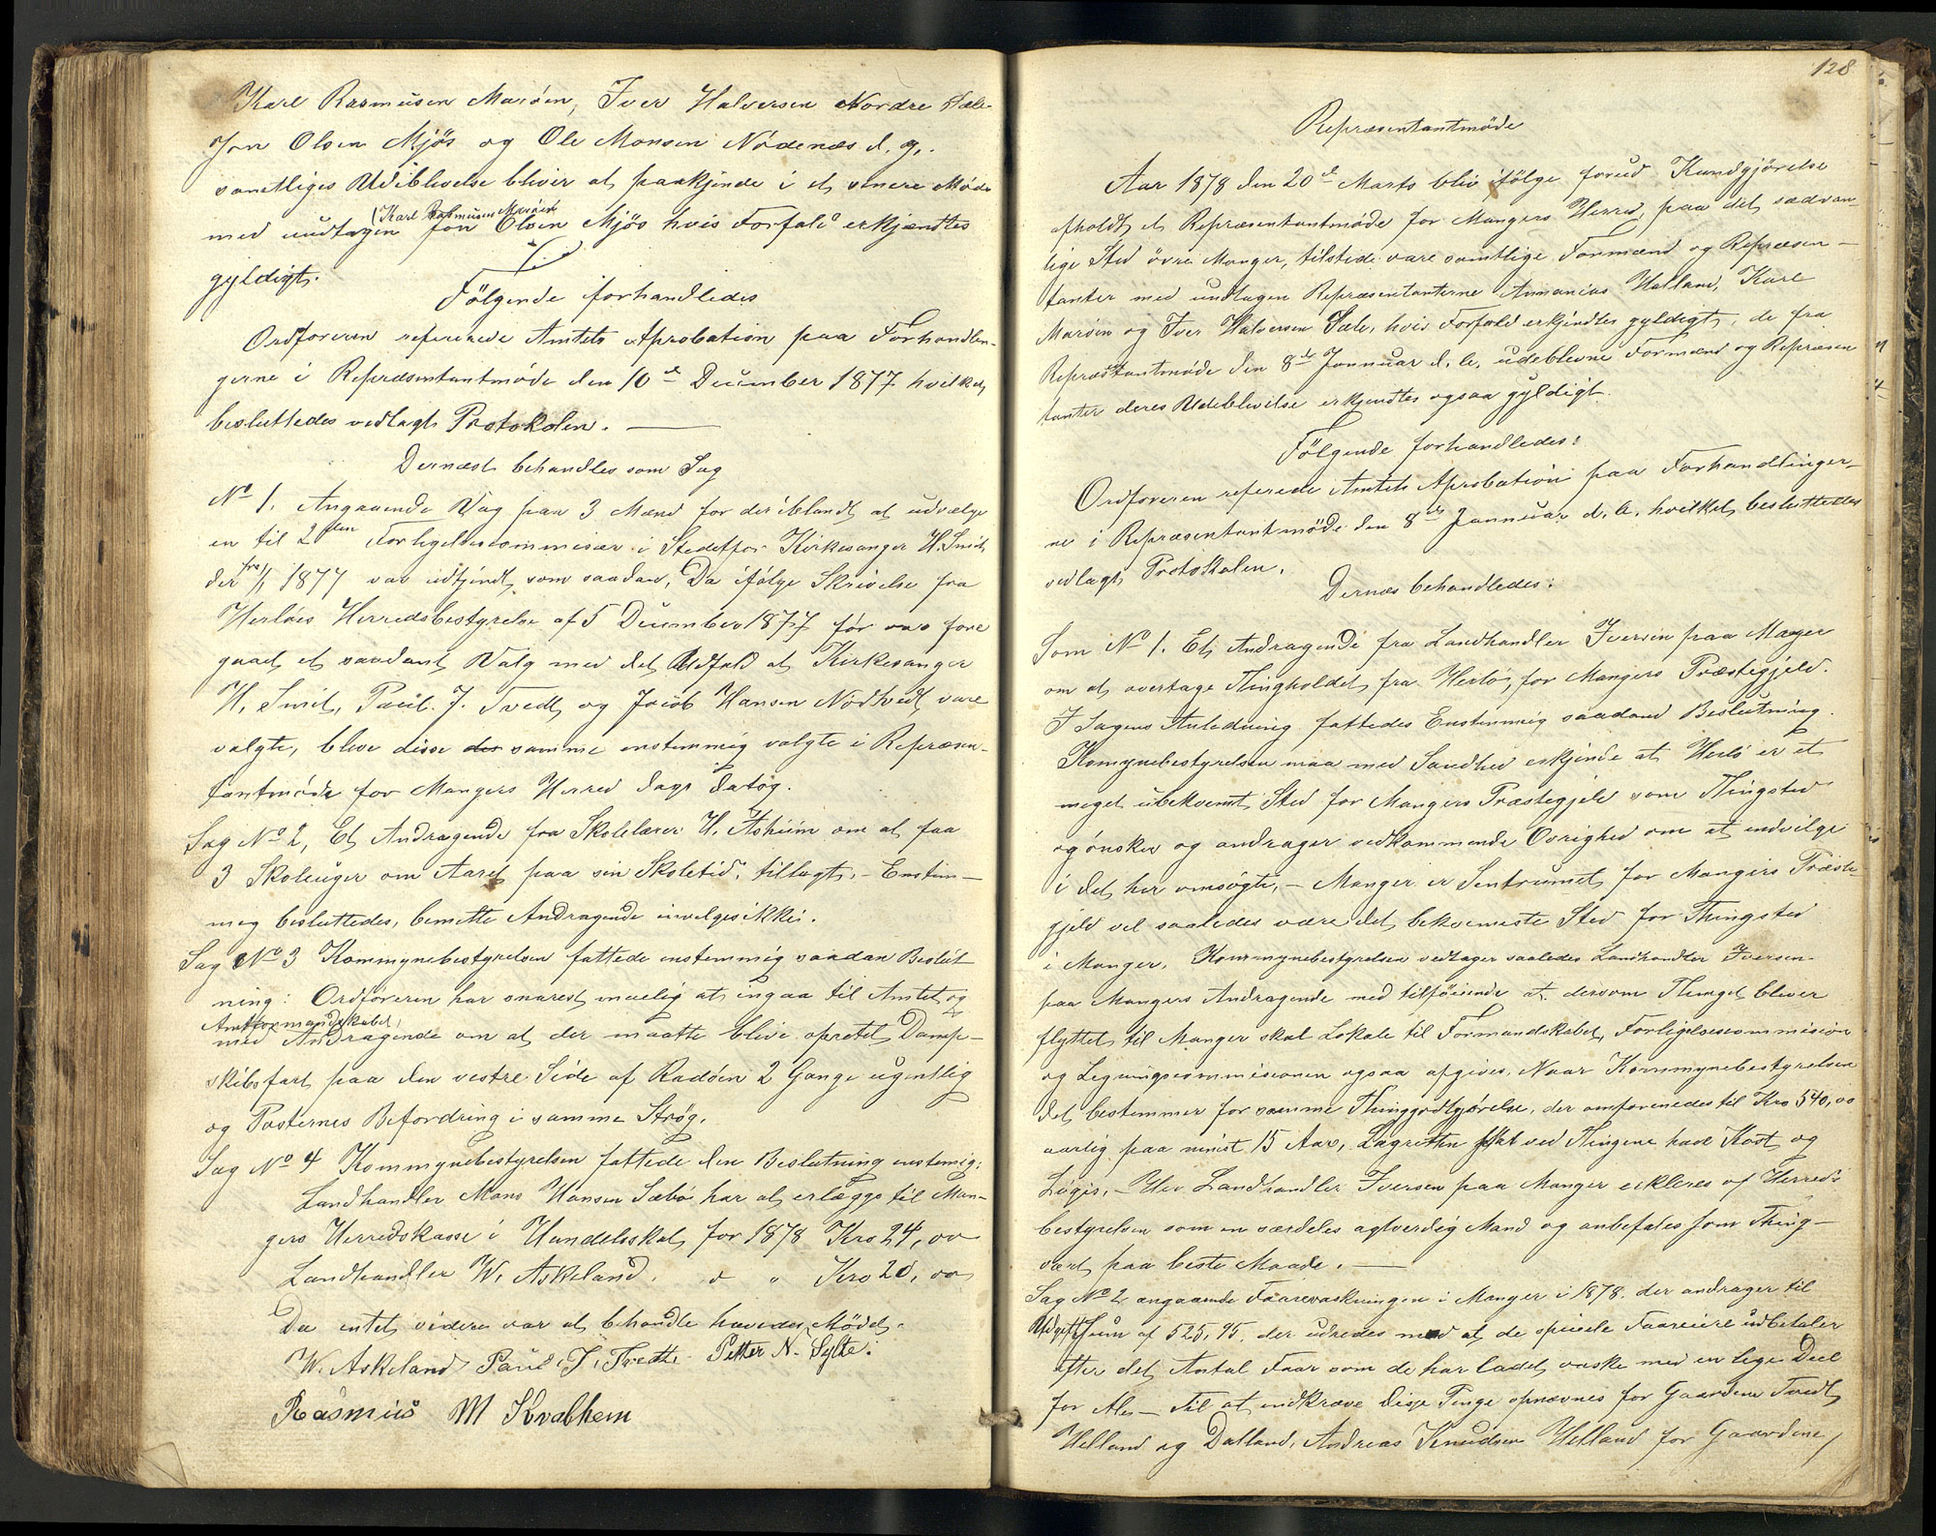 Karl Rasmusen Marøen, Iver Halversen Nordre Sæle
Jon Olsen Mjøs og Ole Monsen Nødenæs d. g.
samtliges Udiblivelse bliver at paakjende i et senere Møde
(Karl Rasmusen Marøen
med undtagen Jon Olsen Mjøs hvis Forfald erkjændtes
gyldigt.
Følgende forhandledes
Ordføreren refererede Amtets Aprobation paa Forhandlin-
gerne i Repræsentantmøde den 10de December 1877 hvilket
besluttedes vedlagt Protokolen.
Dernæst behandles som Sag
No 1. Angaaende Valg paa 3 Mænd for deriblandt at udvælge
en til 2den Forligelsescommisær i Stedetfor Kirkesanger H. Smit
der fra 1/1 1877 var udtjendt som saadan, Da ifølge Skrivelse fra
Herløes Herredsbestyrelse af 5 December 1877 før var fore
gaaet et saadant Valg med det Udfald at Kirkesanger
H. Smit, Paul J. Tvedt og Jacob Hansen Nødtvedt vare
valgte, bleve disse der samme enstemmig valgte i Repræsen-
tantmøde for Mangers Herred dags Datog.
Sag No 2, Et Andragende fra Skolelærer H. Askeim om at faa
3 Skoleuger om Aaret paa sin Skoletid, tillagt, - Enstem-
mig besluttedes, bemelte Andragende invelges ikke.
Sag No 3 Kommynebestyrelsen fattede enstemmig saadan Beslut
ning: Ordføreren har snarest muelig at ingaa til Amtet og
Amtformandskabet,
med Andragende om at der maatte blive opretet Damp-
skibsfart paa den vestre Side af Radøen 2 Gange ugentlig
og Posternes Befordring i samme Strøg.
Sag No 4 Kommynebestyrelsen fattede den Beslutning enstemig:
Landhandler Mons Hansen Sæbø har at erlægge til Man-
gers Herredskasse i Handelsskat for 1878 Kro 24, 00
Landhandler W. Askeland. d " Kro 20, 00
Da intet videre var at behandle hævedes Mødet.
W. Askeland Paul J. Tvedt Petter N. Sylte.
Rasmus M Kvalhem
128
Repræsentantmøde
Aar 1878 den 20de Marts blev ifølge forud Kundgjørelse
afholdt et Repræsentantmøde for Mangers Herred, paa det sædvan-
lige Sted øvre Manger, tilstede vare samtlige Formænd og Repræsen-
tanter med undtagen Repræsentanterne Annanias Halland, Karl
Marøen og Iver Halversen Sæle, hvis Forfald erkjendtes gyldigt, de fra
Repræstantmøde den 8de Jannuar d. A. udeblevne Formænd og Repræsen
tanter deres Udeblivelse erkjendtes ogsaa gyldigt.
Følgende forhandledes:
Ordføreren referede Amtets Aprobation paa Forhandlinger-
ne i Repræsentantmøde den 8de Jannuar d. A. hvilket besluttedes
vedlagt Protokolen.
Dernæs behandledes:
Som No 1. Et Andragende fra Landhandler Iversen paa Manger
om at overtage Thingholdet fra Herlø, for Mangers Præstegjeld.
I Sagens Anledning fattedes Enstemmig saadand Beslutning.
Komynebestyrelsen maa med Sandhed erkjende at Herlø er et
meget ubekvemt Sted for Mangers Præstegjeld som Thingsted
og ønsker og andrager vedkommende Øvrighed om at indvilge
i det her omsøgte, - Manger er Sentrumet for Mangers Præste
gjeld vel saaledes være det bekvemeste Sted for Thingsted
i Manger. Kommynebestyrelsen vedtager saaledes Landhandler Iversen
paa Mangers Andragende med tilføiende at dersom Thinget bliver
flyttet til Manger skal Lokale til Formandskabet, Forligelsescommision
og Ligningscommisionen ogsaa afgives, Naar Kommynebestyrelsen
det bestemmer for samme Thinggodtgjørelse, der omforenedes til Kro 540, 00
aarlig paa minst 15 Aar, Lagretten skal ved Thingene have Kost og
Logis, - Blev Landhandler Iversen paa Manger erkleres af Herreds
bestyrelsen som en særdeles agtverdig Mand og anbefales som Thing-
vært paa beste Maade. -
Sag No 2 angaaende Faarevaskningen i Manger i 1878. der andrager til
Udgift Sum af 525, 95. der udredes med at de spicele Faareiere udbetaler
efter det Antal Faar som de har ladet vaske med en lige Deel
for Alle - Til at indkræve disse Penge opnævnes for Gaardene Tvedt,
Helland og Dalland, Andreas Knudsen Helland for Gaardene